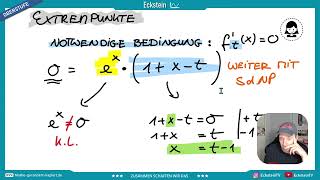 OBERSTUFE
Eckstein
EXTREMPUNKTE
NOTWENDIGE BEDINGUNG : f't(x)=0
0 = e^x · (1+x-t) WEITER MIT
SdNP
e^x ≠ 0 1+x-t=0 | +t
k.L. 1+x = t | -1
x = t-1
ZUSAMMEN SCHAFFEN WIR DAS
EcksteinTV EcksteinTV